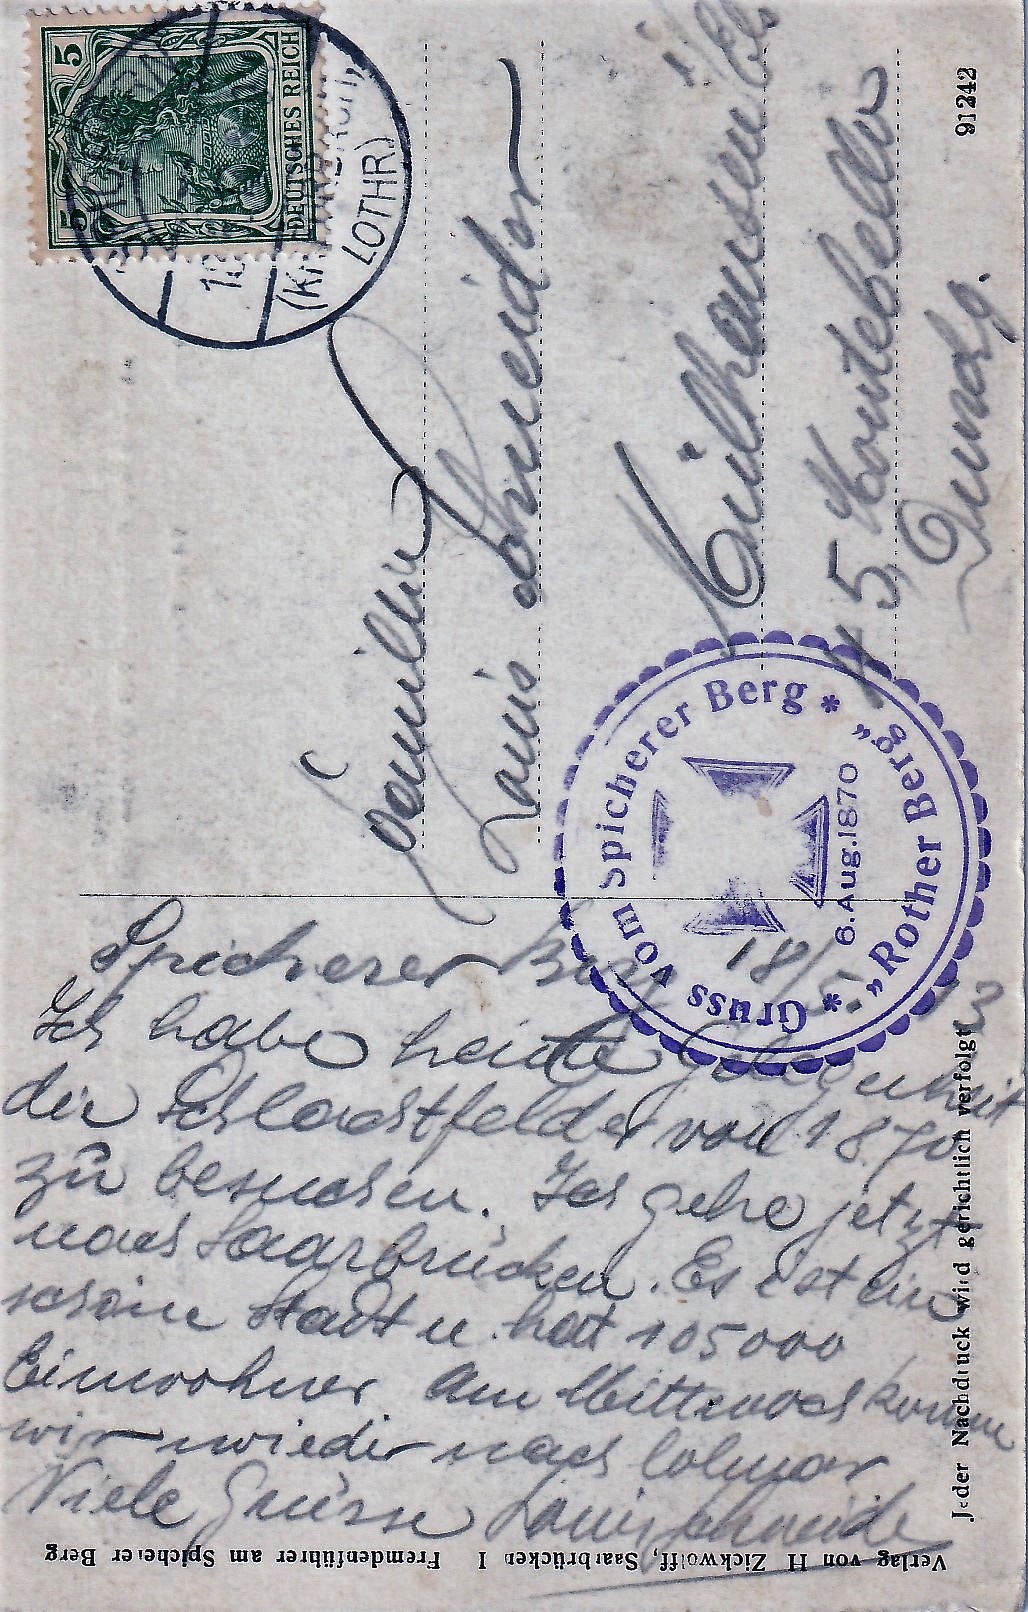 5 5
DEUTSCHES REICH
LOTHR)
91 242
Familien
Louis Schneider
Mülhausen i/Els
45,
Gruss vom Spicherer Berg * "Rother Berg" *
6. Aug. 1870
Spicherer Berg 18/5. 13
Ich habe heute Gelegenheit
die Schlachtfelder von 1870
zu besuchen. Ich gehe jetzt
nach Saarbrücken. Es ist eine
schöne Stadt u. hat 105000
Einwohner Am Mittwoch kommen
wir wieder nach Colmar
Viele Grüsse Louis Schneider
Jeder Nachdruck wird gerichtlich verfolgt
Verlag von H Zickwolff, Saarbrücken I Fremdenführer am Spicherer Berg